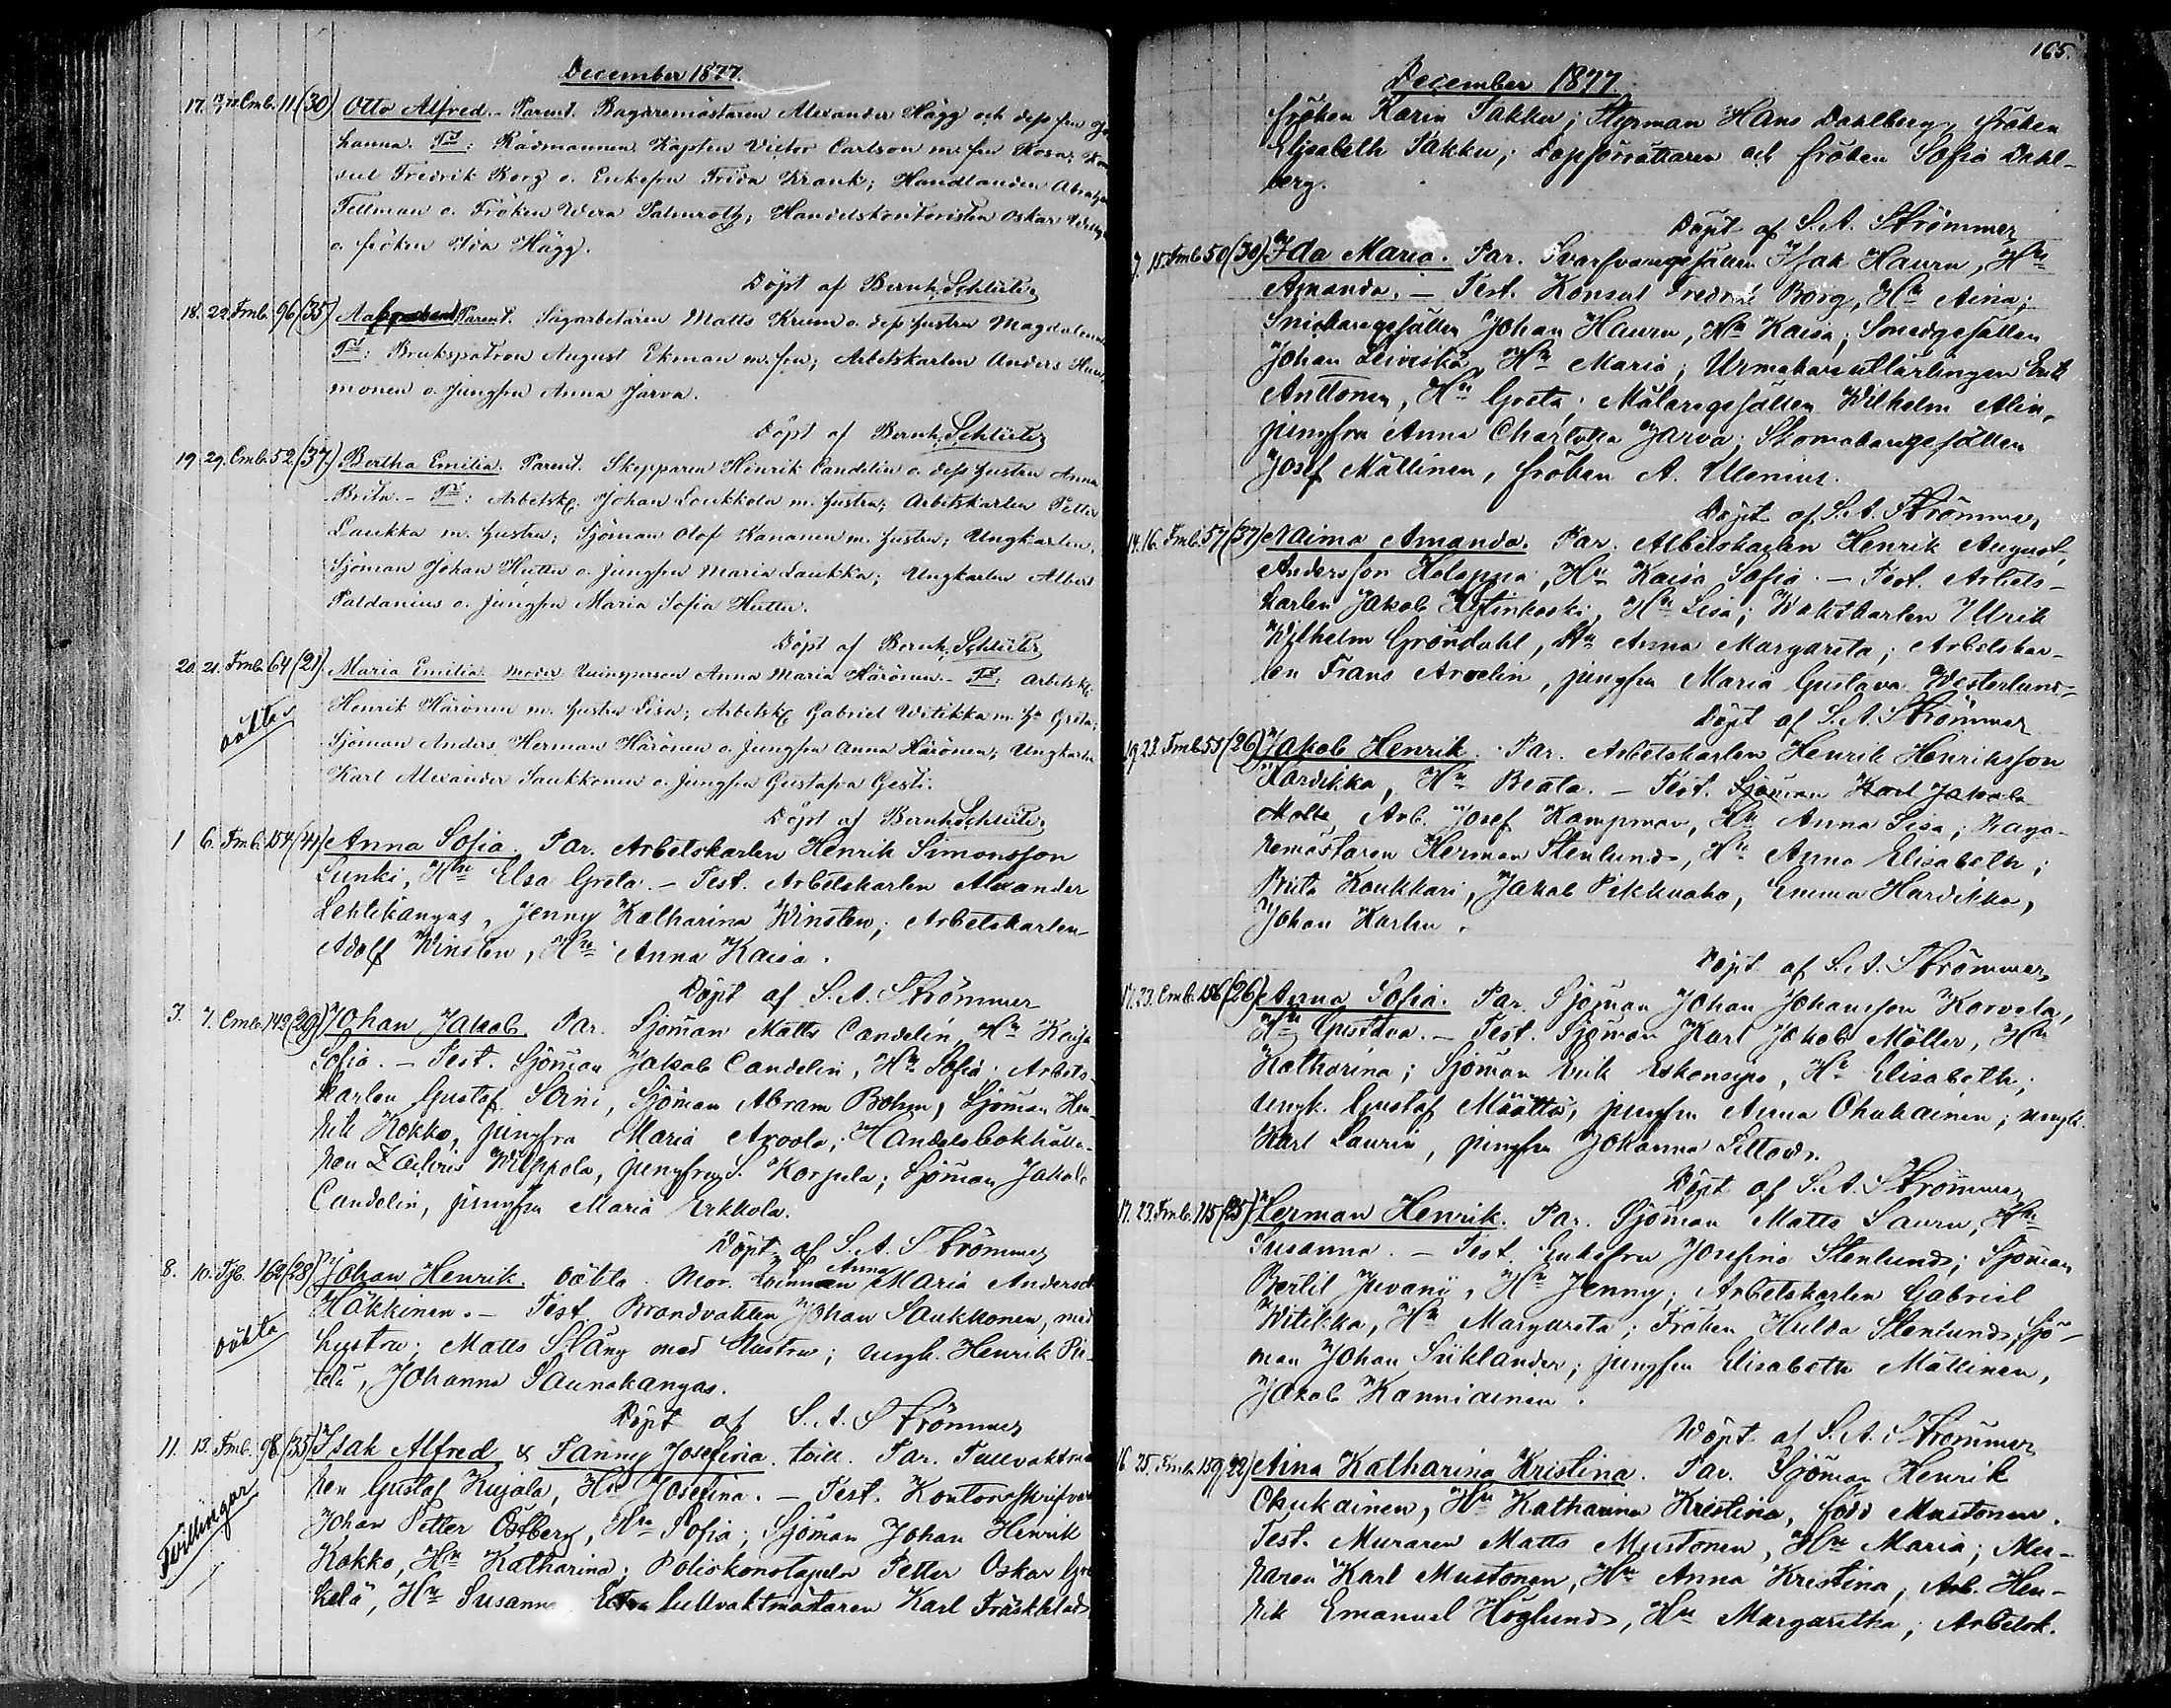 December 1877.
17. Cmb. 11 (30) Otto Alfred. - Parent. Bagaremästaren Alexander Hägg och dess fru Jo
hanna. Tt: Rådmannen Kapten Victor Carlson m. fru Rosa; Kon
sul Fredrik Borg o. Enkefru Frida Krank; Handlanden Abraham
Tellman o. Fröken Wera Palmroth; Handelskontoristen Oskar
o. fröken Ida Hägg.
Döpt af Bernh. Schlüter
18. 22. Fmb. 96 (35) Parent. Sågarbetaren Matts Krum o. dess hustru Magdalena
Tt: Brukspatron August Ekman m. fru; Arbetskarlen Anders
monen o. jungfru Anna Jarva.
Döpt af Bernh. Schlüter
19. 29. Cmb. 52 (37) Bertha Emilia. Parent. Skepparen Henrik Candelin o. dess hustru Anna
Brita. - Tt: Arbetsk. Johan Loukkola m. hustru; Arbetskarlen Petter
Laukka m. hustru; Sjöman Olof Kananen m. hustru; Ungkarlen,
Sjöman Johan Huttu o. jungfru Maria Laukka; Ungkarlen Albert
Paldanius o. jungfru Maria Sofia Huttu.
Döpt af Bernh. Schlüter
20. 21. Fmb. 64 (21) Maria Emilia. Moder Qvinsperson Anna Maria Härönen. - Tt: Arbetsk.
oäkta
Henrik Härönen m. hustru Lisa; Arbetsk. Gabriel Witikka m. h. Greta;
Sjöman Anders Herman Härönen o. jungfru Anna Härönen; Ungkarlen
Karl Alexander Saukkonen o. jungfru Gustafva Gesti.
Döpt af Bernh. Schlüter
1 6. Fmb. 154 (41) Anna Sofia. Par. Arbetskarlen Henrik Simonsson
Lunki, Hru Elsa Greta. - Test. Arbetskarlen Alexander
Lehtikangas, Jenny Katharina Winsten; Arbetskarlen
Adolf Winsten, Hru Anna Kaisa.
Döpt af S. A. Strömmer
3. 7. Cmb. 142 (29) Johan Jakob. Par. Sjöman Matts Candelin, Hu Kaisa
Sofia. - Test. Sjöman Jakob Candelin, Hu Sofia; Arbets-
karlen Gustaf Soini, Sjöman Abram Bohm, Sjöman Hen-
rik Kokko, jungfru Maria Arvola; Handelsbokhålla-
ren Zachris Wilppola, jungfru S. Korpula; Sjöman Jakob
Candelin, jungfru Maria Erkkola.
Döpt af S. A. Strömmer
8. 10. 162 (28) Johan Henrik. oäkta. Mor. Anna Maria Andersdr
oäkta
Häkkinen. - Test. Brandvakten Johan Saukkonen, med
hustru; Matts Stång med Hustru; ungk. Henrik
telä, Johanna Saunakangas.
Döpt af S. A. Strömmer
11. 13. Fmb. 98 (35) Isak Alfred & Fanny Josefina. tvill. Par. Tullvaktma
Tvillingar
ren Gustaf Kujala, Hu Josefina. - Test. Kontorsskrifvar
Johan Petter Östberg, Hu Sofia; Sjöman Johan Henrik
Kokko, Hu Katharina; Poliskonstapeln Petter Oskar
kelä, Hu Susanna Tullvaktmästaren Karl Fräskblad
165.
December 1877.
fröken Karin Takku; Styrman Hans Dahlberg, fröken
Elisabeth Takku; Dopförrättaren och fröken Sofia Dahl-
berg.
Döpt af S. A. Strömmer
7. 15. Fmb. 50 (30) Ida Maria. Par. Svarfvaregesällen Isak Hauru, Hu
Amanda. - Test. Konsul Fredrik Borg, Hu Aina;
Snickaregesällen Johan Hauru, Hu Kaisa; Smedgesällen
Johan Leiviskä, Hu Maria; Urmakareutlärlingen Erik
Anttonen, Hu Greta; Målaregesällen Wilhelm Alin,
jungfru Anna Charlotta Jarva; Skomakaregesällen
Josef Mällinen, fröken A. Ulenius.
Döpt af S. A. Strömmer
14. 16. Fmb. 57 (37) Naima Amanda. Par. Arbetskarlen Henrik August
Andersson Holappa, Hu Kaisa Sofia. - Test. Arbets-
karlen Jakob Hytinkoski, Hu Lisa; Waktkarlen Ulrik
Wilhelm Gröndahl, Hu Anna Margareta; Arbetskar-
len Frans Arvelin, jungfru Maria Gustava Westerlund.
Döpt af S. A. Strömmer
19. 23. Fmb. 55 (26) Jakob Henrik. Par. Arbetskarlen Henrik Henriksson
Hardikka, Hu Beata. - Test. Sjöman Karl Jakob
Arb. Josef Kampman, Hu Anna Lisa; Baga-
remästaren Herman Stenlund, Hu Anna Elisabeth;
Brita Koukkari, Jakob Pikkuaho, Emma Hardikka,
Johan Karlin.
Döpt af S. A. Strömmer
17. 23. Cmb. 156 (26) Anna Sofia. Par. Sjöman Johan Johansson Korvela,
Hu Gustava. - Test. Sjöman Karl Jakob Möller, Hu
Katharina; Sjöman Erik Hu Elisabeth;
ungk. Gustaf Määttä, jungfru Anna Ohukainen; ungk.
Karl Laurin, jungfru Johanna
Döpt af S. A. Strömmer
17. 23. Fmb. 115 (25) Herman Henrik. Par. Sjöman Matts Lauru, Hu
Susanna. - Test. Enkefru Josefina Stenlund; Sjöman
Bertil Juvani, Hu Jenny; Arbetskarlen Gabriel
Witikka, Hu Margareta; Fröken Hulda Stenlund, Sjö-
man Johan Siiklander; jungfru Elisabeth Mällinen,
Jakob Kanniainen.
Döpt af S. A. Strömmer
16 25. Fmb. 159 (22) Aina Katharina Kristina. Par. Sjöman Henrik
Ohukainen, Hu Katharina Kristina, född Mustonen.
Test. Muraren Matts Mustonen, Hu Maria; Mu-
raren Karl Mustonen, Hu Anna Kristina; Arb. Hen-
rik Emanuel Höglund, Hu Margaretha; Arbetsk.